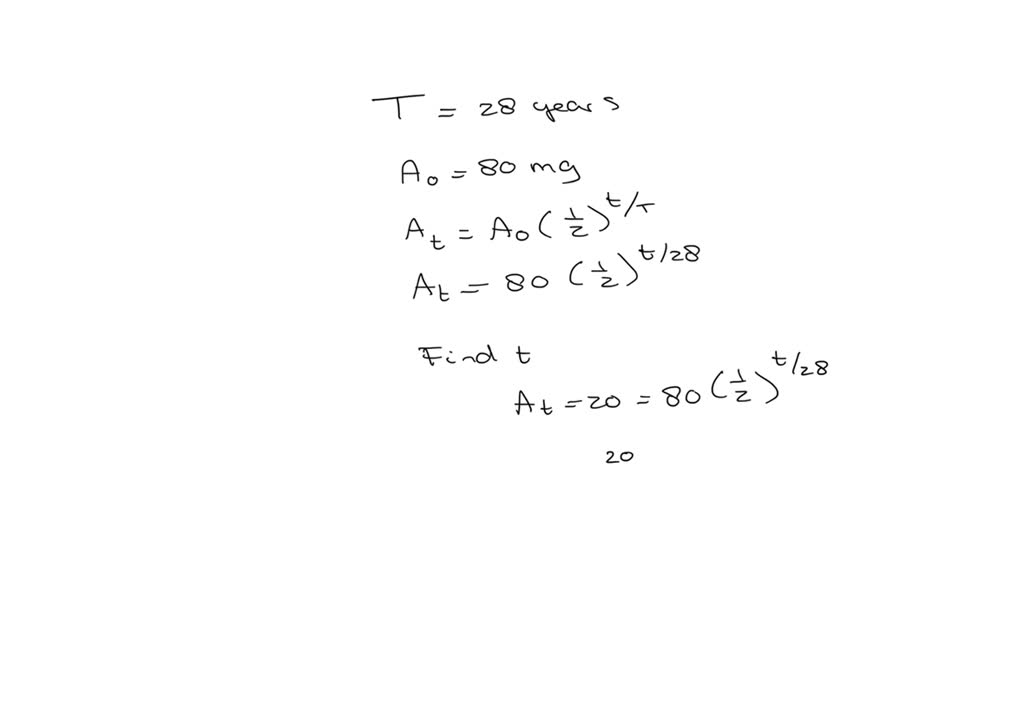 T = 28 years
A₀ = 80 mg
A_t = A₀ (1/2)^t/T
A_t = 80 (1/2)^t/28
Find t
A_t = 20 = 80 (1/2)^t/28
20